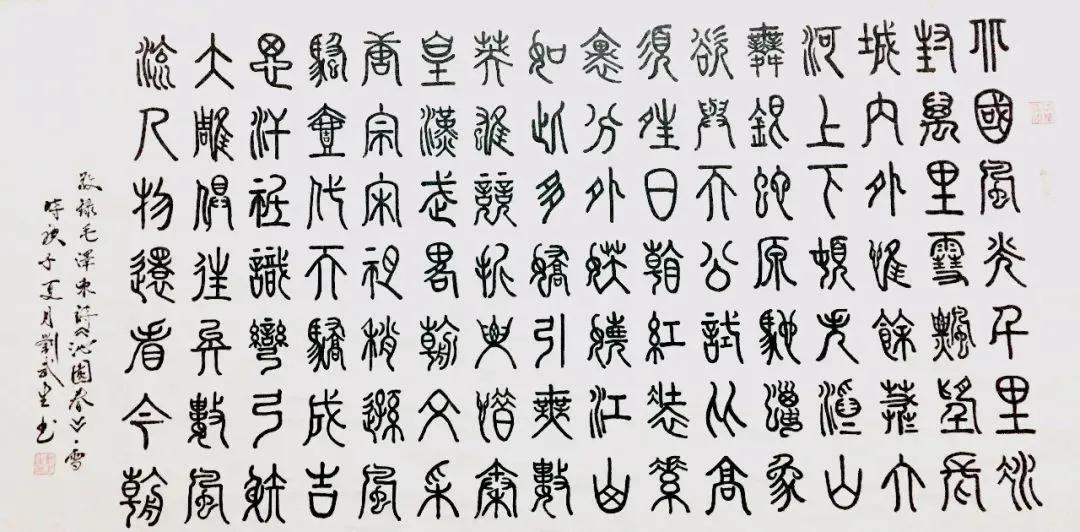 北國風光千里冰
封萬里雪飄望長
城內外惟餘莽大
河上下頓失滔山
舞銀蛇原馳蠟象
欲與天公試比高
須晴日看紅裝素
裹分外妖嬈江山
如此多嬌引無數
英雄競折腰惜秦
皇漢武略輸文采
唐宗宋祖稍遜風
騷壹代天驕成吉
思汗祇識彎弓射
大雕俱往矣數風
流人物還看今朝
敬錄毛澤東詞《沁園春》·雪
時庚子夏月劉武生书